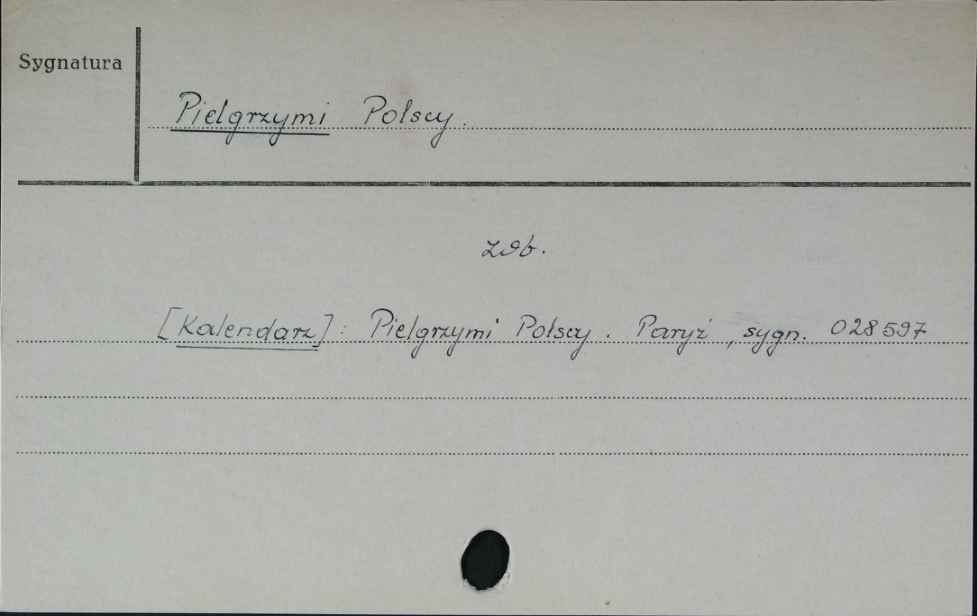 Sygnatura
Pielgrzymi Polscy.
zob.
[Kalendarz]: Pielgrzymi Polscy. Paryż, sygn. 028597